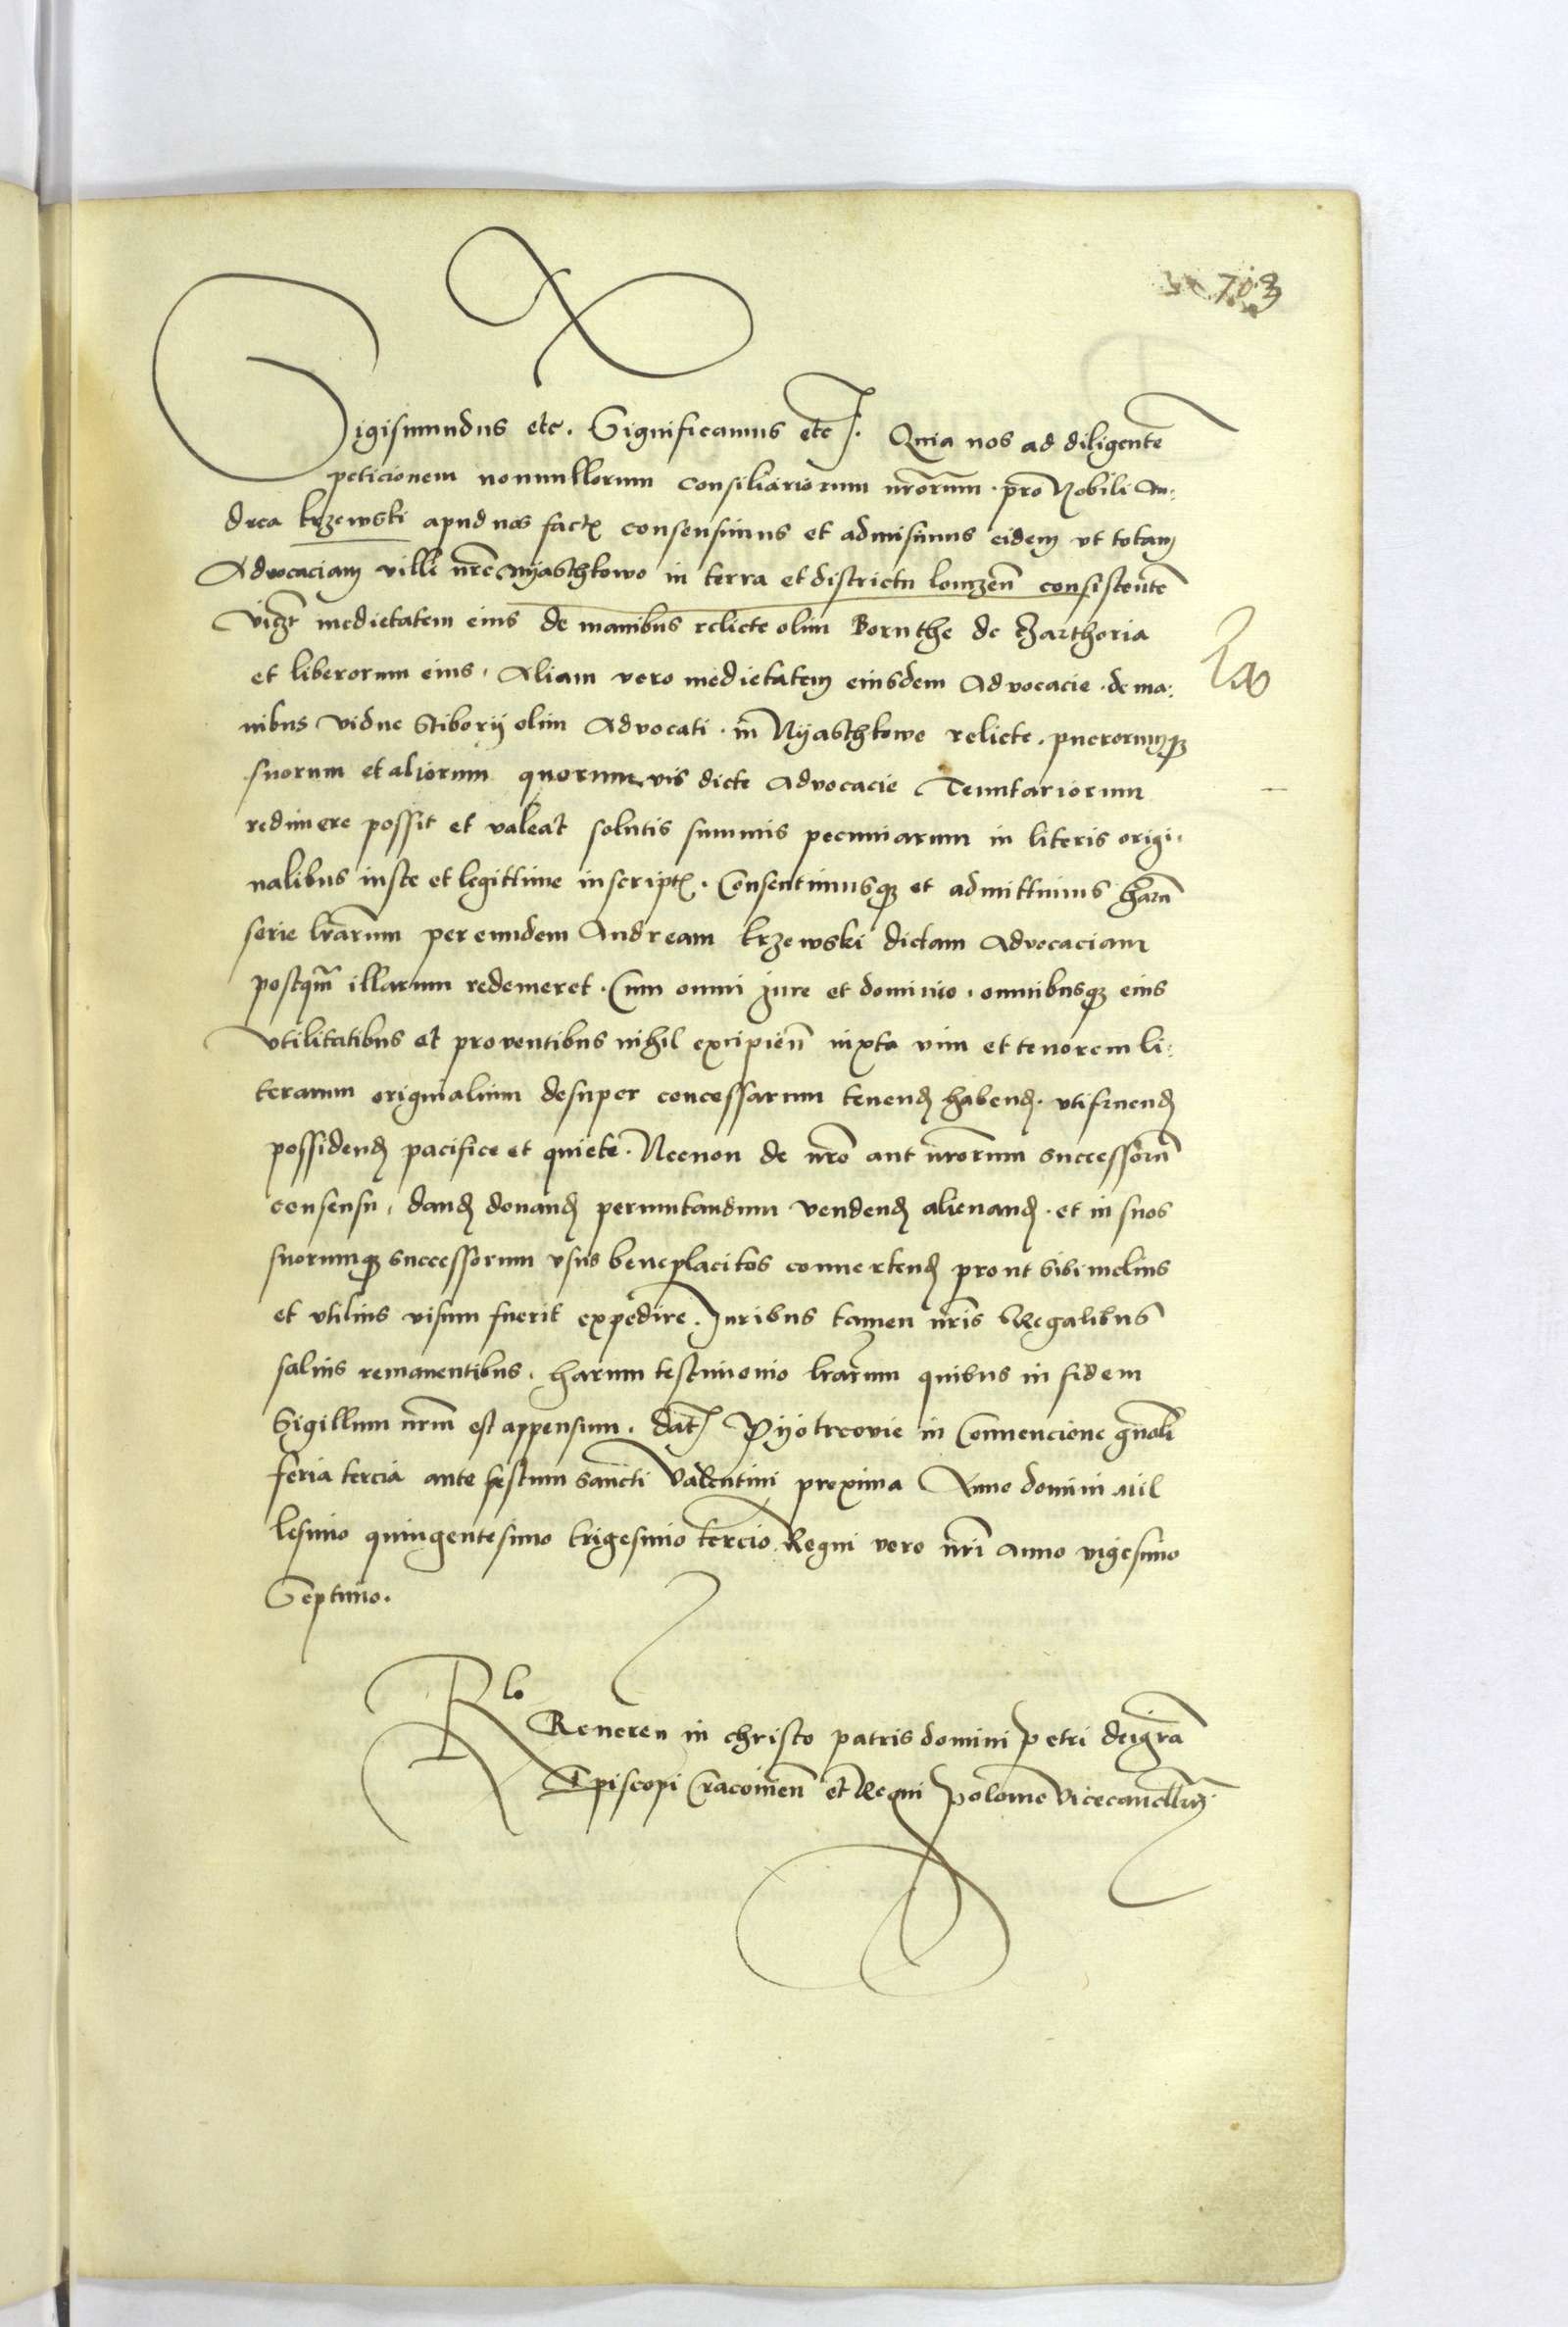 703
Sigismundus etc. Significamus etc. Quia nos ad diligentē
peticionem nonnullorum consiliariorum nr̄orum. pro Nobili An:
drea krzewski apud nos fact consensimus et admisimus eidem vt totam
Advocaciam ville nr̄e Nyaschkowo in terra et districtu lomzeñ consistentē
vicꝫt medietatem eius de manibus relicte olim Boruthe de Czarthoria
et liberorum eius, Aliam vero medietatem eiusdem Advocacie. de ma:
nibus vidue Stiborij olim Advocati. in Nyaschkowo relicte. puerorumqꝫ
suorum et aliorum quorumvis dicte Advocacie Tenutariorum
redimere possit et valeat solutis summis pecuniarum in literis origi:
nalibus iuste et legittime inscript. Consentimusqꝫ et admittimus harū
serie lr̄arum per eundem Andream krzewski dictam Advocaciam
postqm̄ illarum redemeret. Cum omni Iure et dominio. omnibusqꝫ eius
vtilitatibus et proventibus nihil excipieñ iuxta vim et tenorem li:
terarum originalium desuper concessarum tenend habend. vtifruend
possidend pacifice et quiete. Necnon de nr̄o aut nr̄orum successorū
consensu, dand donand permutandum vendend alienand. et in suos
suorumqꝫ successorum vsus beneplacitos convertend prout sibi melius
et vtilius visum fuerit expedire. Iuribus tamen nr̄is Regalibus
saluis remanentibus. harum testimonio lr̄arum quibus in fidem
Sigillum nr̄m est appensum. dat Pyotrcovie in Convencione gn̄ali
feria tercia ante festum sancti Valentini proxima Anno domini Mil
lesimo quingentesimo trigesimo tercio Regni vero nr̄i anno vigesimo
Septimo.
Rlo
Reueren in christo patris domini Petri dei gr̄a
Episcopi Cracovieñ et Regni Polonie Vicecancllrij